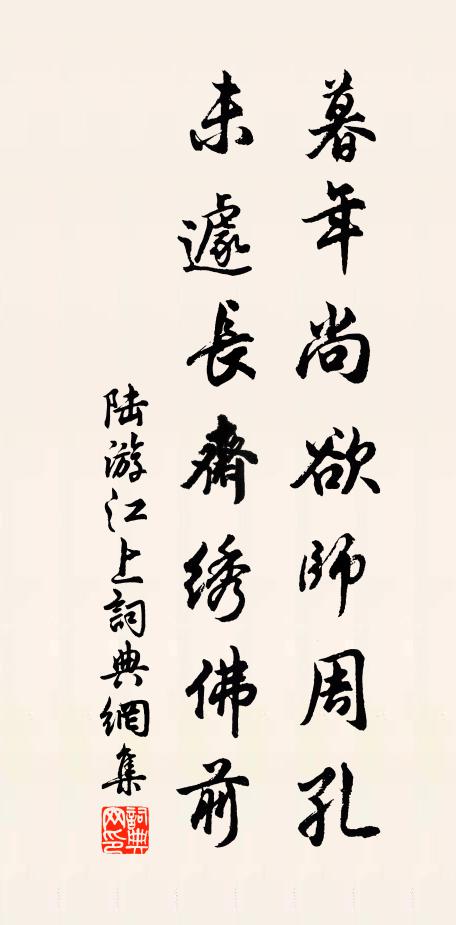 暮年尚欲師周孔
未遽長齋綉佛前
陆游江上詞典網集
詞典
网印